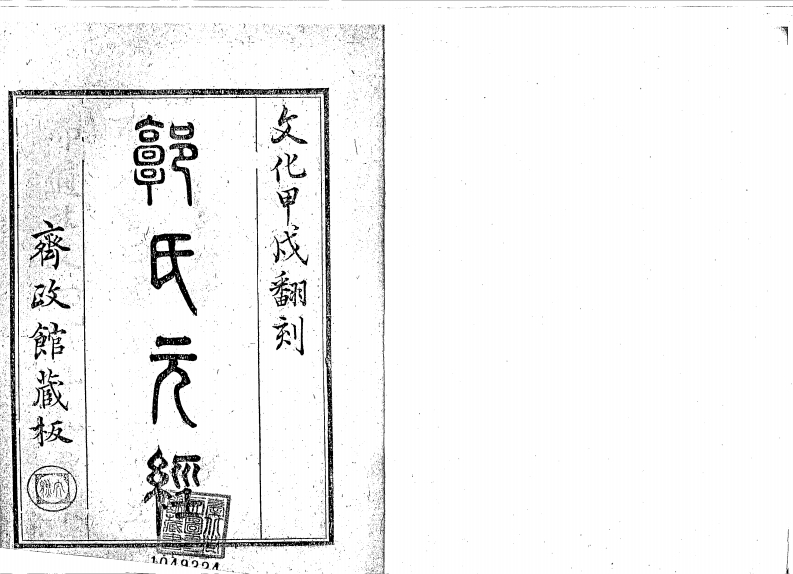 文化甲戌翻刻
郭氏元經
齊政館蔵板
1049324